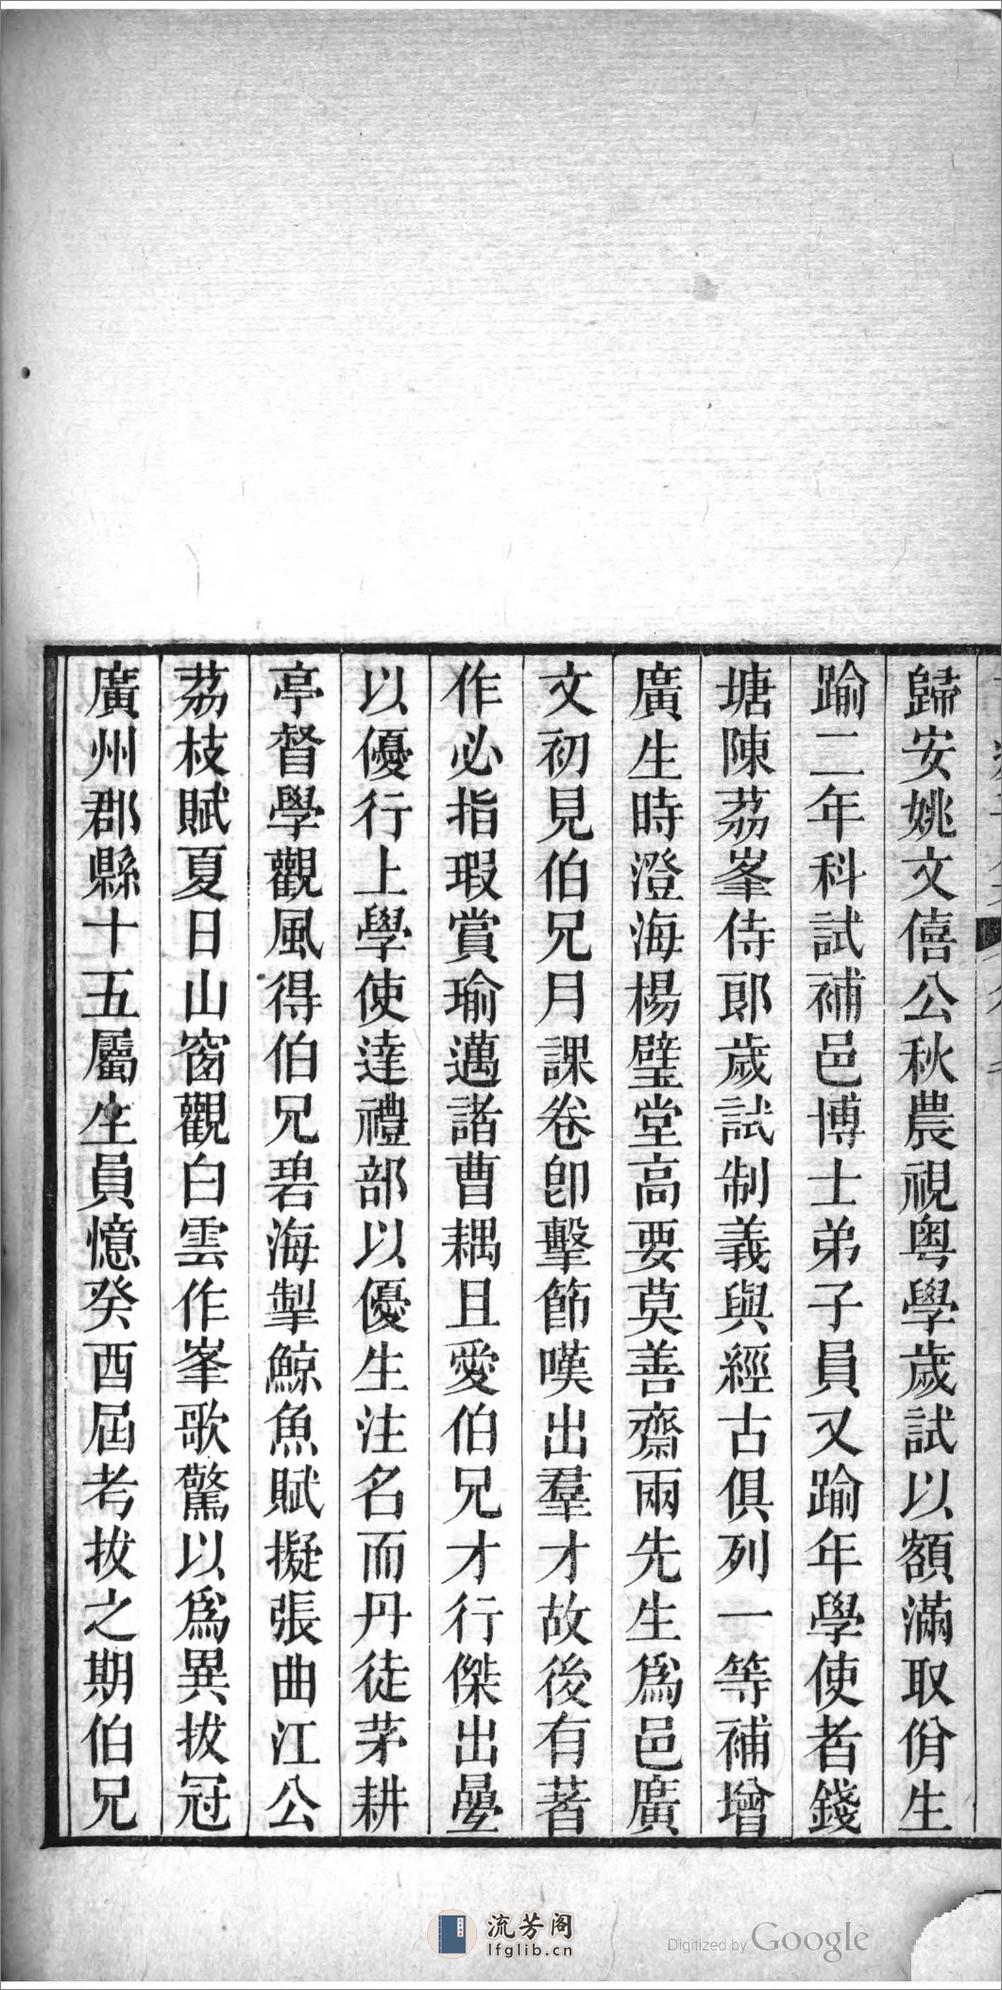 歸安姚文僖公秋農視粵學歲試以額滿取佾生
踰二年科試補邑博士弟子員又踰年學使者錢
塘陳荔峯侍郎歲試制義與經古俱列一等補增
廣生時澄海楊璧堂高要莫善齋兩先生爲邑廣
文初見伯兄月課卷卽擊節嘆出羣才故後有著
作必指瑕賞瑜邁諸曹耦且愛伯兄才行傑出曡
以優行上學使達禮部以優生注名而丹徒茅耕
亭督學觀風得伯兄碧海掣鯨魚賦擬張曲江公
荔枝賦夏日山窗觀白雲作峯歌驚以爲異拔冠
廣州郡縣十五屬生員憶癸酉屆考拔之期伯兄
流芳阁
lfglib.cn
Digitized by Google